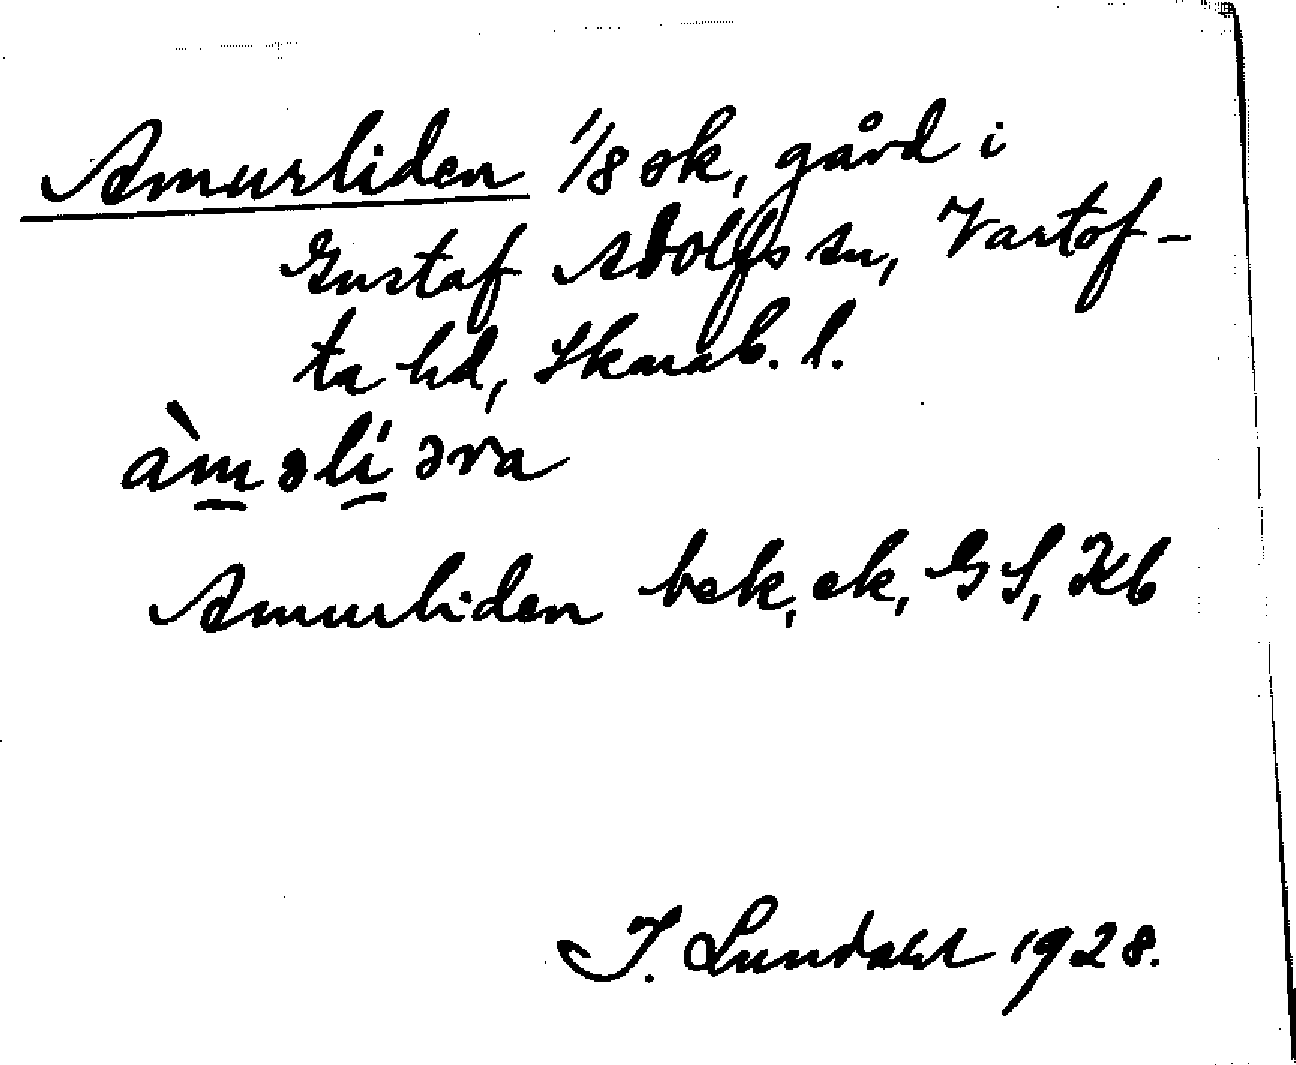 Amurliden 1/8 sk, gård i
Gustaf Adolfs sn, Vartof-
ta hd, Skarab. l.
àməlíəna
Amurliden bek, ek, GS, Kb
I. Lundahl 1928.